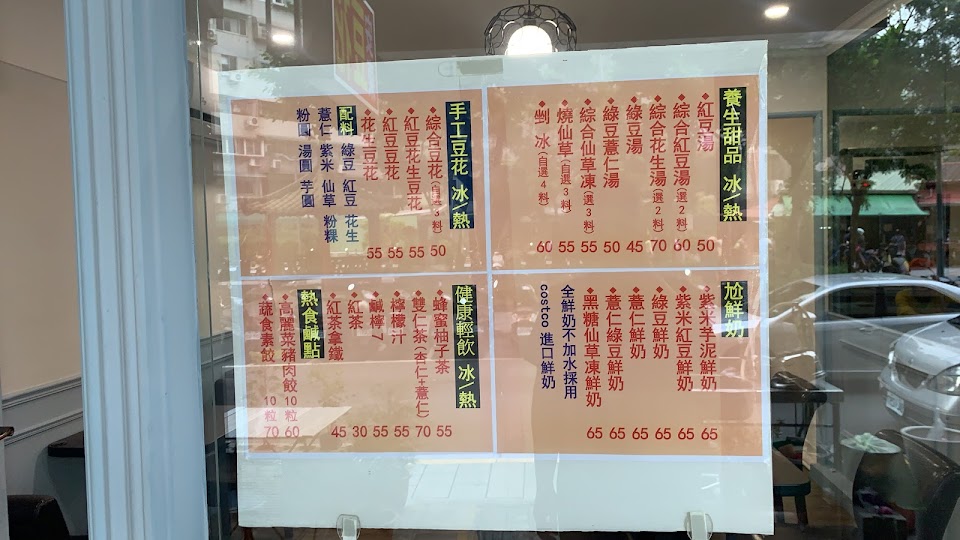 養生甜品 冰/熱
◆紅豆湯 50
◆綜合紅豆湯(選2料) 60
◆綜合花生湯(選2料) 70
◆綠豆湯 45
◆綠豆薏仁湯 50
◆綜合仙草凍(選3料) 55
◆燒仙草(自選3料) 55
◆剉冰(自選4料) 60
手工豆花 冰/熱
◆綜合豆花(自選3料) 50
◆紅豆花生豆花 55
◆紅豆豆花 55
◆花生豆花 55
配料 綠豆 紅豆 花生
薏仁 紫米 仙草 粉粿
粉圓 湯圓 芋圓
尬鮮奶
◆紫米芋泥鮮奶 65
◆紫米紅豆鮮奶 65
◆綠豆鮮奶 65
◆薏仁鮮奶 65
◆薏仁綠豆鮮奶 65
◆黑糖仙草凍鮮奶 65
全鮮奶不加水採用
costco 進口鮮奶
健康輕飲 冰/熱
◆蜂蜜柚子茶 55
◆雙仁茶(杏仁+薏仁) 70
◆檸檬汁 55
◆鹹檸7 55
◆紅茶 30
◆紅茶拿鐵 45
熱食鹹點
◆高麗菜豬肉餃 10粒 60
◆蔬食素餃 10粒 70